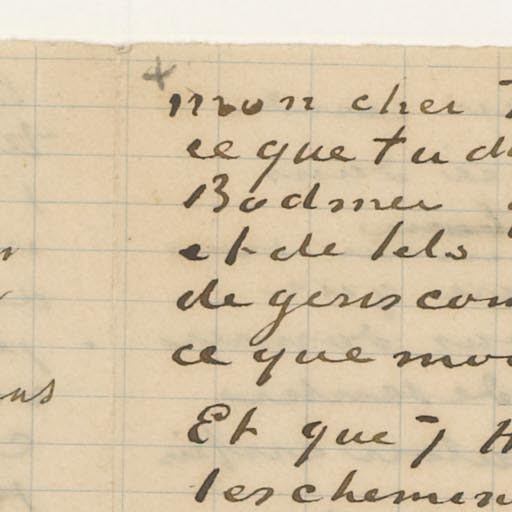 mon cher T
ce que tu d
Bodmer
et de tels
de gens com
ce que moi
Et que T H
les chemins